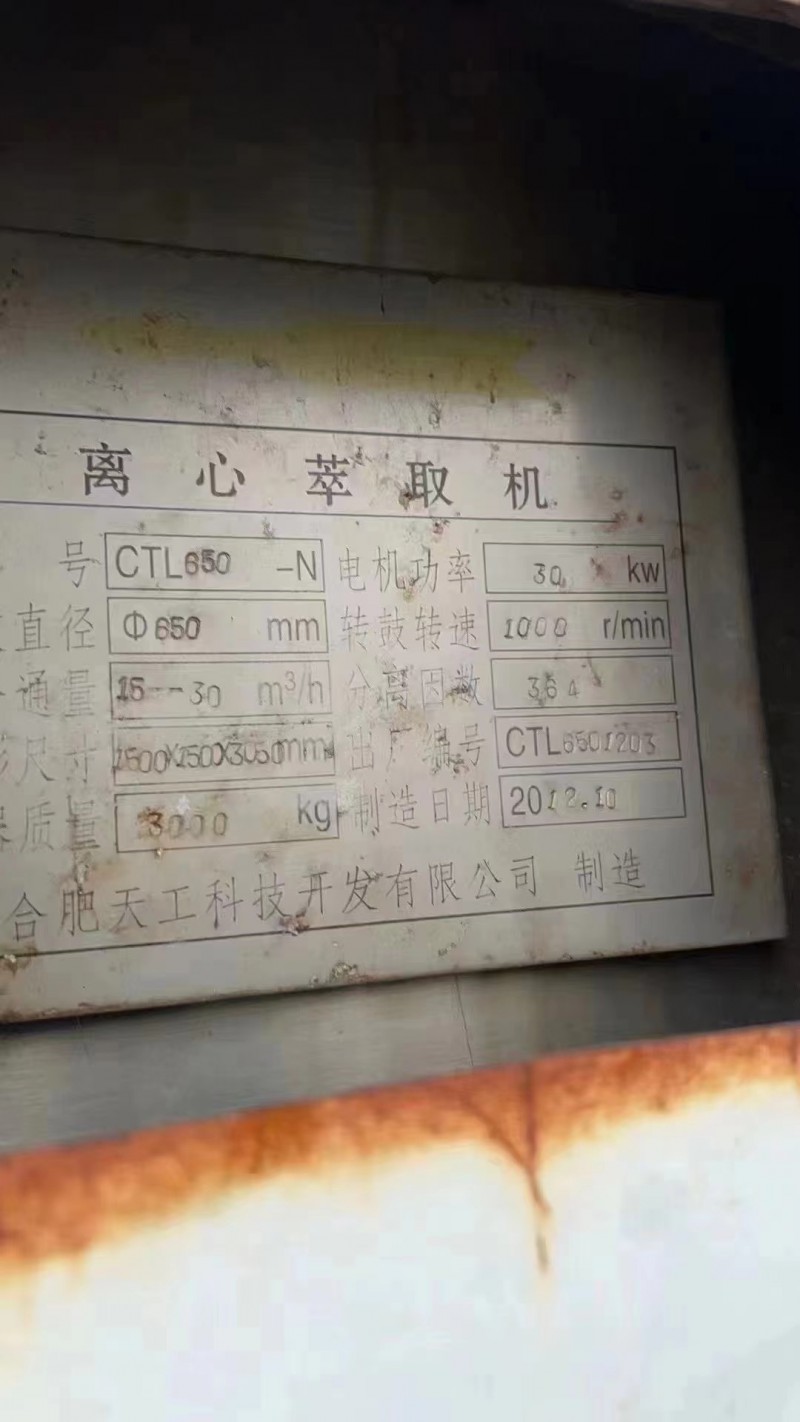 离心萃取机
号 CTL650 -N 电机功率 30 kw
直径 Φ650 mm 转鼓转速 1000 r/min
通量 15--30 m³/h 分离因数 364
尺寸 1500X1500X3050mm 出厂编号 CTL6501203
质量 3000 kg 制造日期 2012.10
合肥天工科技开发有限公司 制造